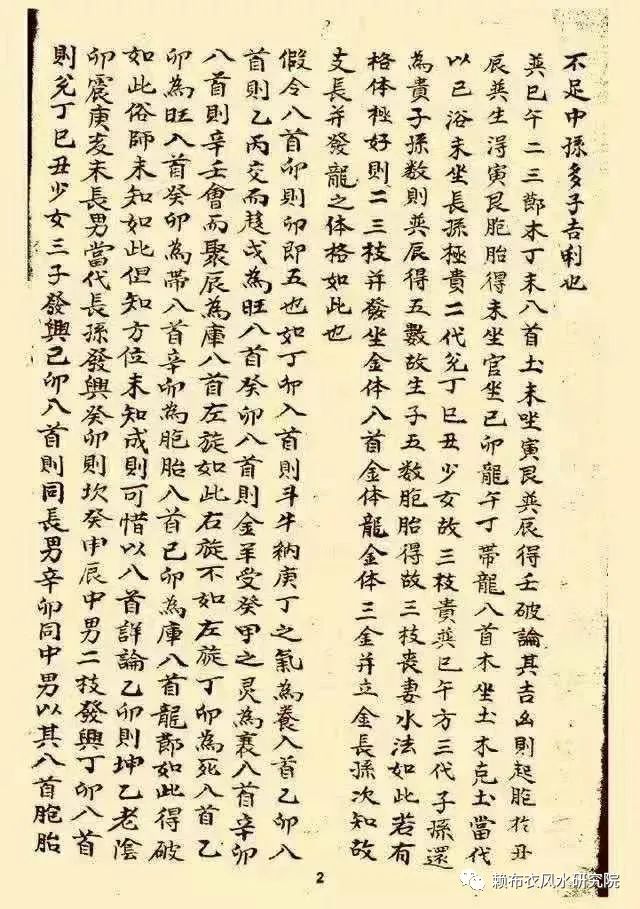 不足中孫多子吉利也
巽巳午二三節木丁未八首土未坐寅艮巽辰得壬破論其吉凶則起胞於丑
辰巽生淂寅艮胞胎得未坐官坐己卯龍午丁帶龍八首木坐土木克土當代
以己浴未坐長孫極貴二代兌丁巳丑少女故三枝貴巽巳午方三代子孫還
為貴子孫数則巽辰得五數故生子五数胞胎得故三枝喪妻水法如此若有
格体極好則二三枝并發坐金体八首金体龍金体三金并立金長孫次知故
支長并發龍之体格如此也
假令八首卯則卯即五也如丁卯入首則斗牛納庚丁之氣為養入首乙卯八
首則乙丙交而趍戌為旺八首癸卯八首則金羊受癸甲之灵為衰八首辛卯
八首則辛壬會而聚辰為庫八首左旋如此右旋不如左旋丁卯為死入首乙
卯為旺入首癸卯為帶八首辛卯為胞胎八首己卯為庫八首龍節如此得破
如此俗師未知如此但知方位未知成則可惜以八首詳論乙卯則坤乙老陰
卯震庚亥未長男當代長孫發興癸卯則坎癸申辰中男二枝發興丁卯八首
則兌丁巳丑少女三子發興己卯八首則同長男辛卯同中男以其八首胞胎
2
赖布衣风水研究院